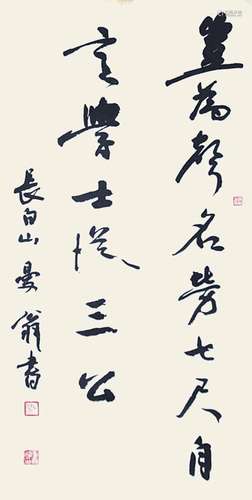 豈為聲名勞七尺自
言學士從三公
長白山曼翁書